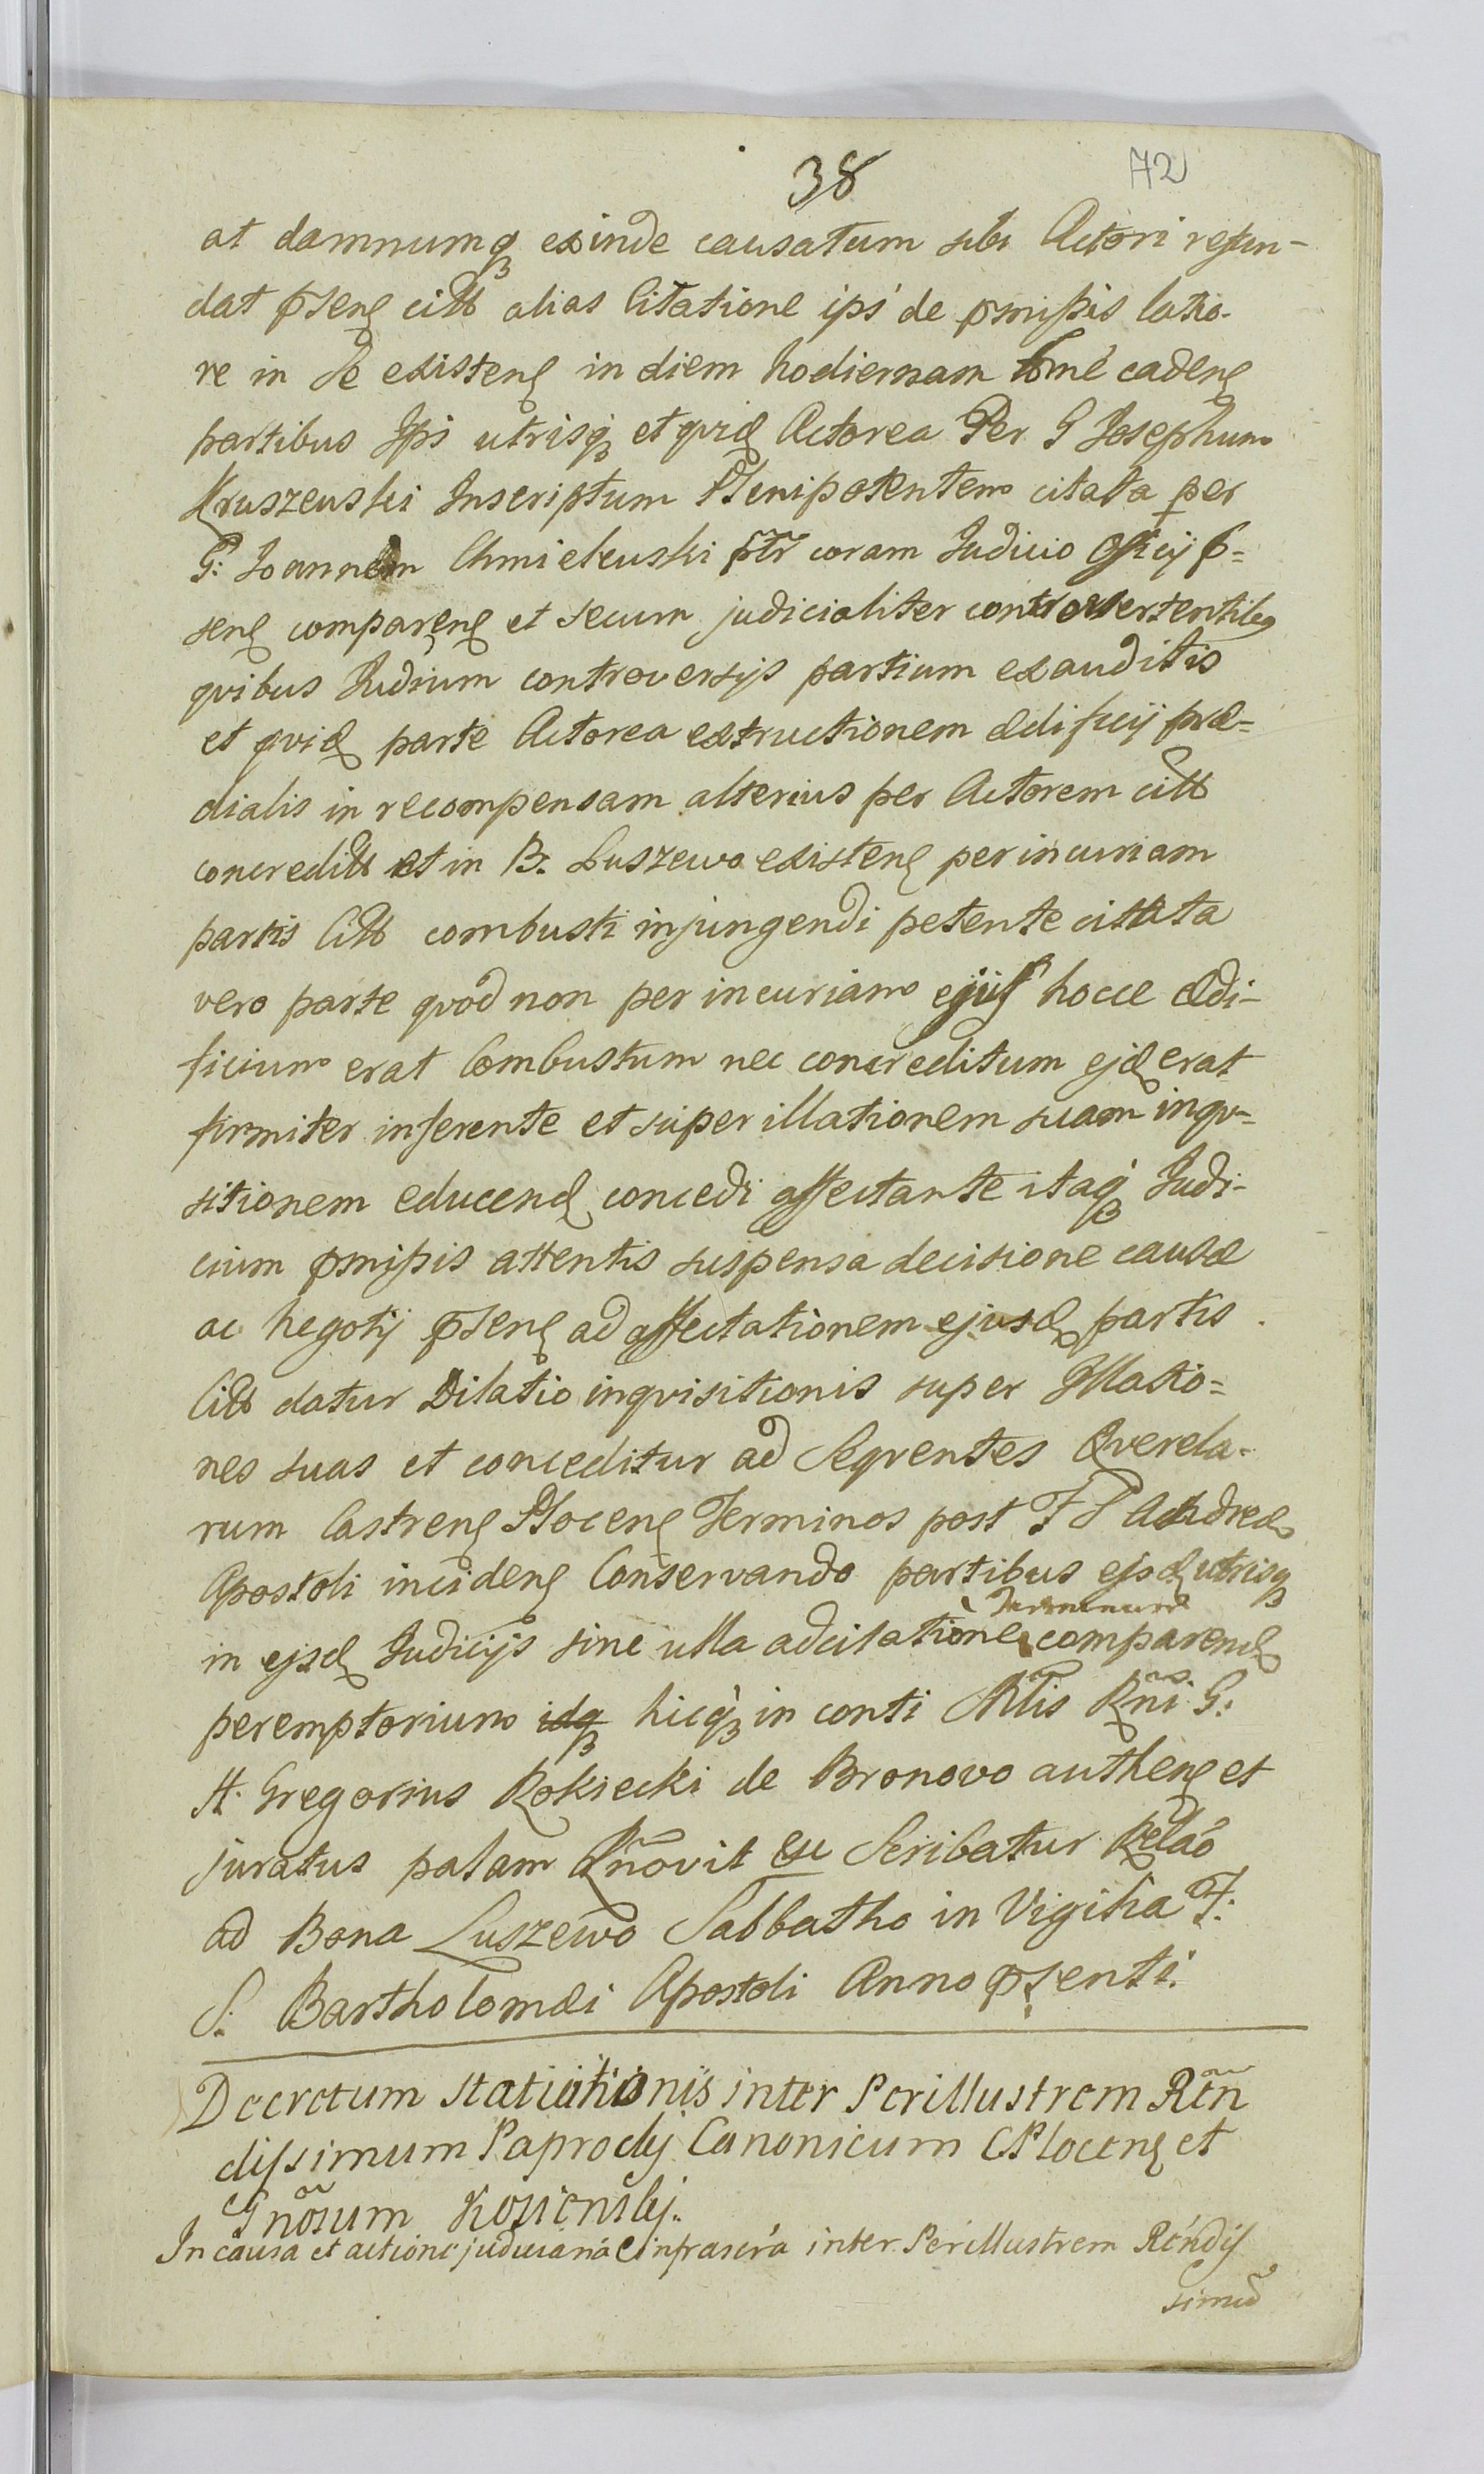 38
72
at damnumq exinde causatum sibi Actori refun-
dat pseñ citt alias Citatione ipsi de pmissis latio-
re in se existeñ in diem hodiernam tme cadeñ
partibus Ipsis utrisq et qvid Actorea Per G Josephum
Kruszewski Inscriptum Plenipotentem citata per
G: Joannem Chmielewski ptr coram Judicio Officij p=
señ compareñ et secum judicialiter controvertentibus
qvibus Judium controversijs partium exauditis
et qvid parte Actorea extructionem ædificij præ=
dialis in recompensam alterius per Actorem citt
concreditt et in B. Luszewo existeñ per incuriam
partis Citt combusti injungendi petente cittata
vero parte qvod non per incuriam ejus hocce ædi-
ficium erat Combustum nec concreditum ejd erat
firmiter inferente et super illationem suam inqvi-
sitionem educend concedi affectante itaq Judi-
cium pmissis attentis suspensa decisione causæ
ac negotij pseñ ad affectationem ejusd partis
Citt datur Dilatio inqvisitionis super Illatio=
nes suas et conceditur ad Seqventes Qverela-
rum Castreñ Ploceñ Terminos post F S Andreæ
Apostoli incideñ Conservando partibus ejsd utrisq
in ejsd Judicijs sine ulla adcitatione Terminum compareñd
peremptorium idq hicq in conti Mtis Rni G:
H. Gregorius Rokicki de Bronovo autheñ et
juratus palam Rnovit Cu Scribatur Relao
ad Bona Luszewo Sabbatho in Vigilia F:
S: Bartholomæi Apostoli Anno psenti.
Decretum Statuitionis inter Perillustrem Ren
dissimum Paprocki Canonicum CPloceñ et
Gnosum Kosienski.
In causa et actione judiciaria infrascra inter Perillustrem Rendis
simu